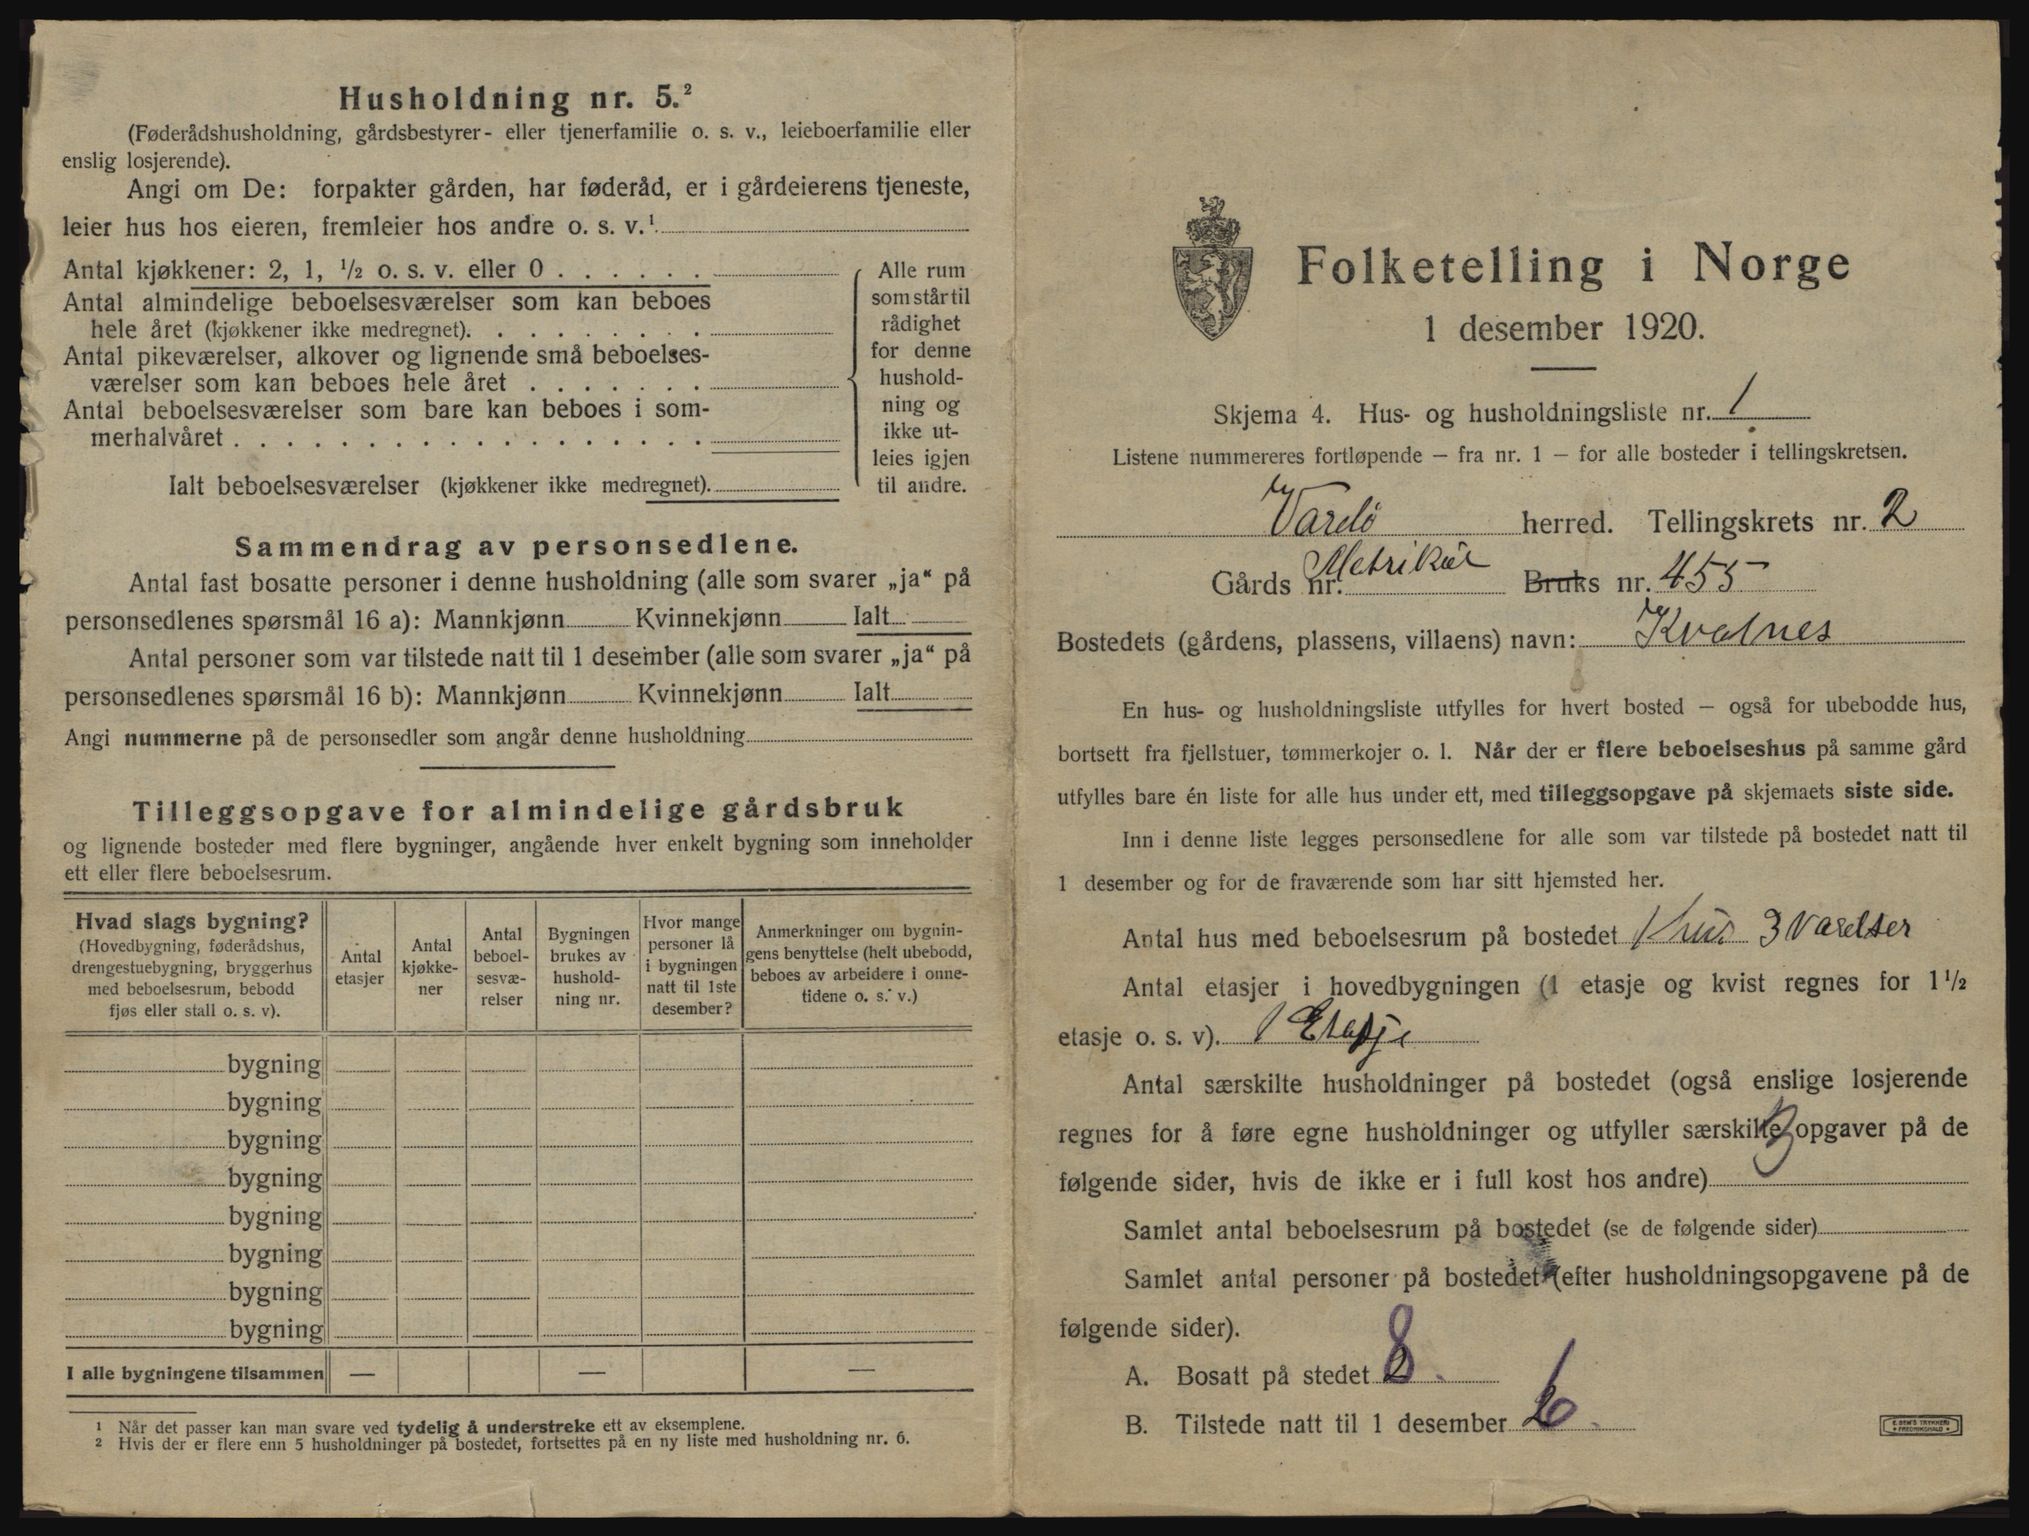 Husholdning nr. 5.²
(Føderådshusholdning, gårdsbestyrer- eller tjenerfamilie o. s. v., leieboerfamilie eller
enslig losjerende).
Angi om De: forpakter gården, har føderåd, er i gårdeierens tjeneste,
leier hus hos eieren, fremleier hos andre o. s. v.¹
Antal kjøkkener: 2, 1, ½ o. s. v. eller 0 . . . . . .
Antal almindelige beboelsesværelser som kan beboes
hele året (kjøkkener ikke medregnet). . . . . . . . .
Antal pikeværelser, alkover og lignende små beboelses-
værelser som kan beboes hele året . . . . . . .
Antal beboelsesværelser som bare kan beboes i som-
merhalvåret . . . . . . . . . . . . . . . . . .
Ialt beboelsesværelser (kjøkkener ikke medregnet).
Alle rum
som står til
rådighet
for denne
hushold-
ning og
ikke ut-
leies igjen
til andre.
Sammendrag av personsedlene.
Antal fast bosatte personer i denne husholdning (alle som svarer „ja“ på
personsedlenes spørsmål 16 a): Mannkjønn Kvinnekjønn Ialt
Antal personer som var tilstede natt til 1 desember (alle som svarer „ja“ på
personsedlenes spørsmål 16 b): Mannkjønn Kvinnekjønn Ialt
Angi nummerne på de personsedler som angår denne husholdning
Tilleggsopgave for almindelige gårdsbruk
og lignende bosteder med flere bygninger, angående hver enkelt bygning som inneholder
ett eller flere beboelsesrum.
Hvad slags bygning?
(Hovedbygning, føderådshus,
drengestuebygning, bryggerhus
med beboelsesrum, bebodd
fjøs eller stall o. s. v).
Antal
etasjer
Antal
kjøkke-
ner
Antal
beboel-
sesvæ-
relser
Bygningen
brukes av
hushold-
ning nr.
Hvor mange
personer lå
i bygningen
natt til 1ste
desember?
Anmerkninger om bygnin-
gens benyttelse (helt ubebodd,
beboes av arbeidere i onne-
tidene o. s. v.)
bygning
bygning
bygning
bygning
bygning
bygning
bygning
bygning
I alle bygningene tilsammen — — —
¹ Når det passer kan man svare ved tydelig å understreke ett av eksemplene.
² Hvis der er flere enn 5 husholdninger på bostedet, fortsettes på en ny liste med husholdning nr. 6.
Folketelling i Norge
1 desember 1920.
Skjema 4. Hus- og husholdningsliste nr. 1
Listene nummereres fortløpende – fra nr. 1 – for alle bosteder i tellingskretsen.
Vardø herred. Tellingskrets nr. 2
Gårds nr. Matrikül Bruks nr. 455
Bostedets (gårdens, plassens, villaens) navn: Kvalnes
En hus- og husholdningsliste utfylles for hvert bosted – også for ubebodde hus,
bortsett fra fjellstuer, tømmerkojer o. l. Når der er flere beboelseshus på samme gård
utfylles bare én liste for alle hus under ett, med tilleggsopgave på skjemaets siste side.
Inn i denne liste legges personsedlene for alle som var tilstede på bostedet natt til
1 desember og for de fraværende som har sitt hjemsted her.
Antal hus med beboelsesrum på bostedet 1 hus 3 Værelser
Antal etasjer i hovedbygningen (1 etasje og kvist regnes for 1½
etasje o. s. v). 1 Etasje
Antal særskilte husholdninger på bostedet (også enslige losjerende
regnes for å føre egne husholdninger og utfyller særskilte opgaver på de
følgende sider, hvis de ikke er i full kost hos andre)
Samlet antal beboelsesrum på bostedet (se de følgende sider)
Samlet antal personer på bostedet (efter husholdningsopgavene på de
følgende sider).
A. Bosatt på stedet 8.
B. Tilstede natt til 1 desember 6.
E. SEM'S TRYKKERI
FREDRIKSHALD